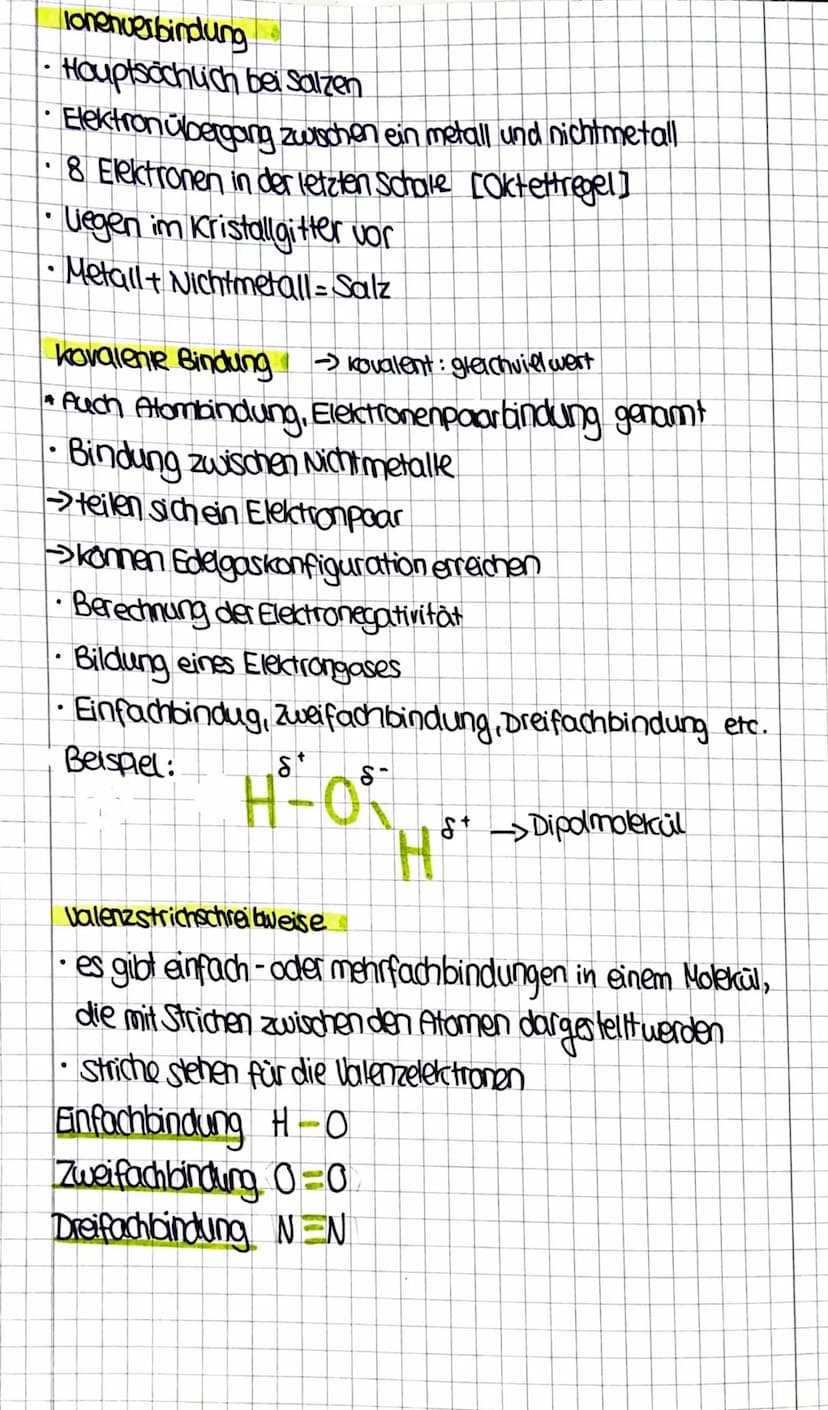 Ionenverbindung
· Hauptsächlich bei Salzen
· Elektronübergang zwischen ein metall und nichtmetall
· 8 Elektronen in der letzten Schale [Oktettregel]
· Liegen im Kristallgitter vor
· Metall + Nichtmetall = Salz
Kovalente Bindung → Kovalent : gleichviel wert
* Auch Atombindung, Elektronenpaarbindung genannt
· Bindung zwischen Nichtmetalle
→ teilen sich ein Elektronpaar
→ können Edelgaskonfiguration erreichen
· Berechnung der Elektronegativität
· Bildung eines Elektrongases
· Einfachbindug, Zweifachbindung, Dreifachbindung etc.
Beispiel: δ+ δ-
H-O\
H δ+ → Dipolmolekül
Valenzstrichschreibweise
· es gibt einfach - oder mehrfachbindungen in einem Molekül,
die mit Strichen zwischen den Atomen dargestellt werden
· Striche stehen für die Valenzelektronen
Einfachbindung H-O
Zweifachbindung O=O
Dreifachbindung N≡N